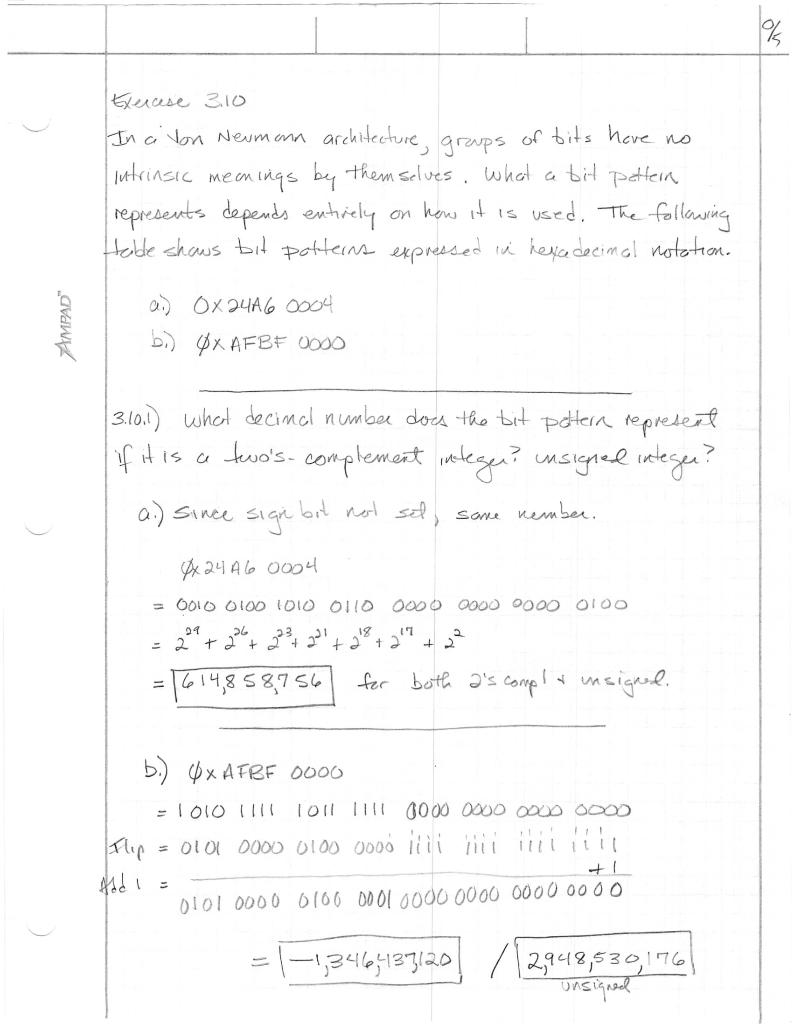 0/5
Exercise 3.10
In a Von Neumann architecture, groups of bits have no
intrinsic meanings by themselves. What a bit pattern
represents depends entirely on how it is used. The following
table shows bit patterns expressed in hexadecimal notation.
AMPAD™
a.) 0x24A6 0004
b.) 0xAFBF 0000
3.10.1) What decimal number does the bit pattern represent
if it is a two's-complement integer? unsigned integer?
a.) Since sign bit not set, same number.
0x24A6 0004
= 0010 0100 1010 0110 0000 0000 0000 0100
= 2²⁹ + 2²⁶ + 2²³ + 2²¹ + 2¹⁸ + 2¹⁷ + 2²
= 614,858,756 for both 2's compl & unsigned.
b.) 0xAFBF 0000
= 1010 1111 1011 1111 0000 0000 0000 0000
Flip = 0101 0000 0100 0000 1111 1111 1111 1111
+1
Add 1 =
0101 0000 0100 0001 0000 0000 0000 0000
= -1,346,437,120 / 2,948,530,176
unsigned